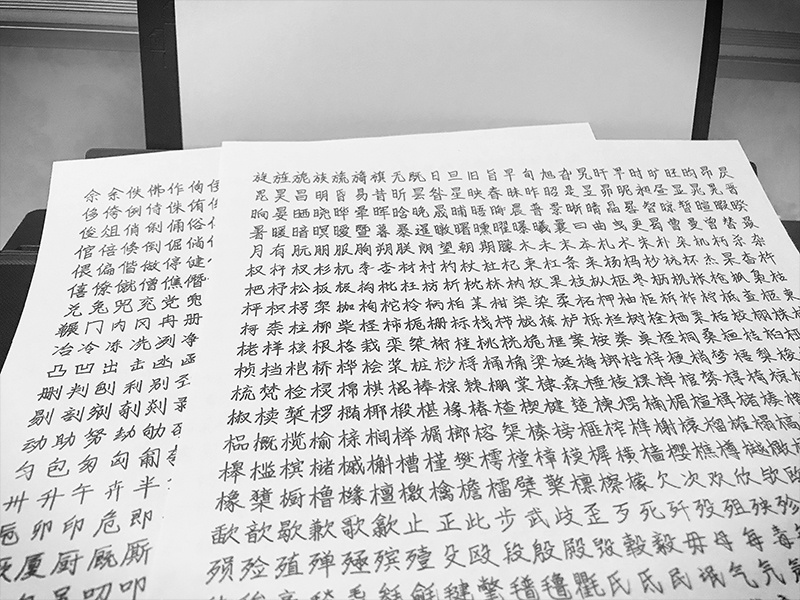 佘余佚佛作
侈侉倒侍侏侑
俊俎俏俐俑俗
倌倍倏倒倔倘
偎偏偕做停健
僖僚僦僧僬僭
兑兔兕兖党兜
门内冈冉册
冶冷冻冼冽净
凸凹出击凼函
删判刨利别
剔剖剜剞剡
动助努劫劬
勺包匆匈匍
卅升午卉半
卮卯印危即
厦厨厩厮
叨叩
旋旌旎族旒旖旗无既日旦旧旨早旬旭旮旯旰旱时旷旺昀昂昃
昆昊昌明昏易昔昕昙昝星映春昧昨昭是昱昴昵昶昼显晁晃晋
晌晏晒晓晔晕晖晗晚晟晡晤晦晨普景晰晴晶晷智晾暂暄暇暌
暑暖暗暝暧暨暮暴暹暾曙曛曜曝曦曩曰曲曳更曷曹曼曾替最
月有朊朋服朐朔朕朗望朝期朦木未末本札术朱朴朵机朽杀杂
权杆杈杉杌李杏材村杓杖杜杞束杠条来杨杩杪杭杯杰杲杳杵
杷杼松板极构枇枉枋析枕林枘枚果枝枞枢枣枥枧枨枪枫枭枯
枰枳枵架枷枸柁柃柄柏某柑柒染柔柘柙柚柜柝柞柠柢查柩柬
柯柰柱柳柴柽柿栀栅标栈栉栊栋栌栎栏树栓栖栗栝校栩株
栲样核根格栽栾桀桁桂桃桄桅框案桉桌桎桐桑桓桔桕
桢档桤桥桦桧桨桩桫桴桶桷梁梃梅梆梏梓梗梢梦梧梨梭
梳梵检棂棉棋棍棒棕棘棚棠棣森棰棱棵棹棺棼椁椅椋
椒椟椠椤椭椰椴椹椽椿楂楔楗楚楝楞楠楣楦楫楮楷
榀概榄榆榇榈榉榍榔榕榘榛榜榧榨榫榭榱榴
槔槛槟槠槭槲槽槿樊樗樘樟模樨横樯樱樵樽樾
橡橥橱橹橼檀檄檎檐檑檗檠檩檫檬欠次欢欣欤欧
歃歆歇歉歌歙止正此步武歧歪歹死歼殁殂殃殄
殒殓殖殚殛殡殪殳殴段殷殿毁毂毅毋母每毒
毛毪毯毳毵毽氅氆氇氍氏氐民氓气氘